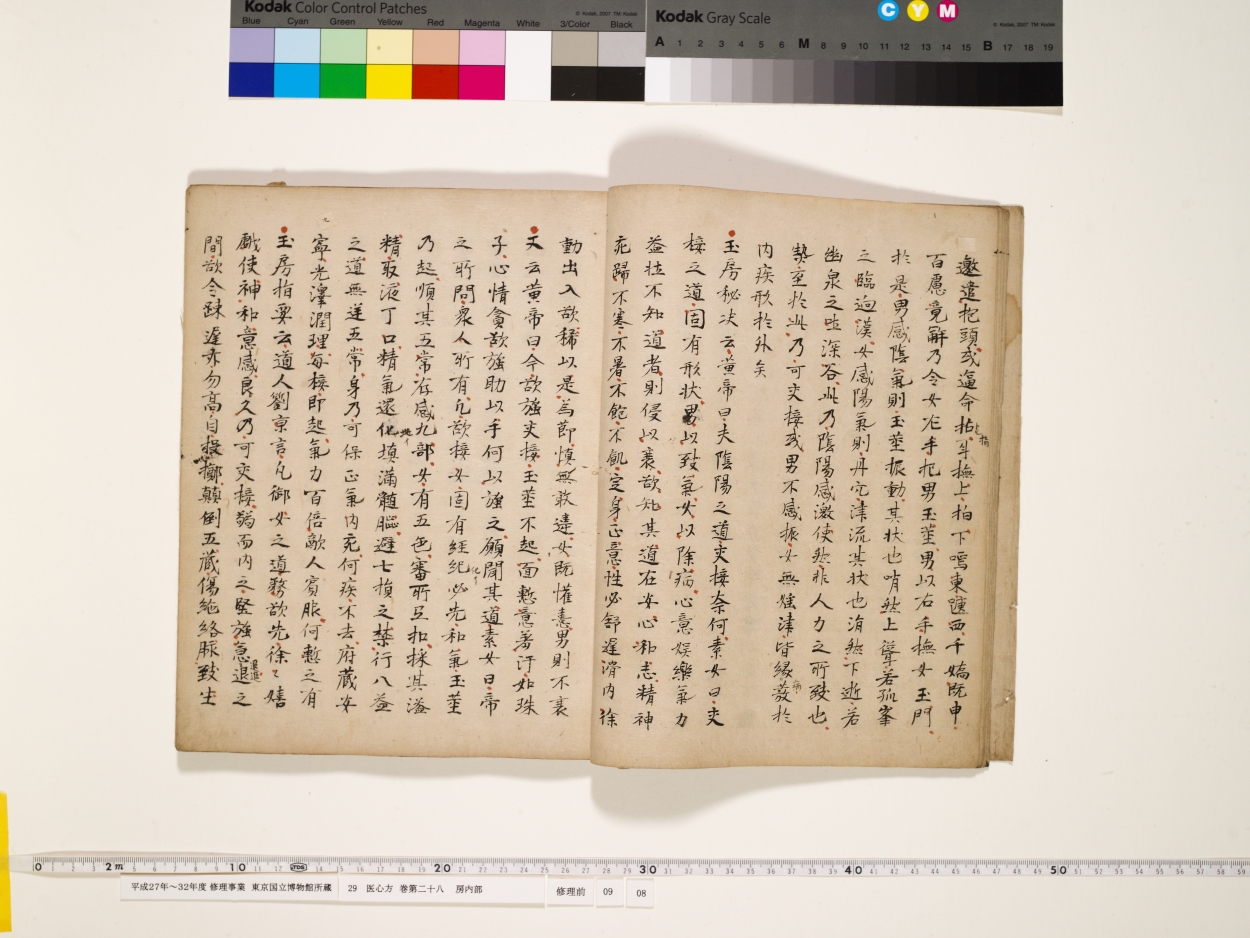 Kodak Color Control Patches
© Kodak, 2007 TM: Kodak
Blue Cyan Green Yellow Red Magenta White 3/Color Black
Kodak Gray Scale
C Y M
© Kodak, 2007 TM: Kodak
A 1 2 3 4 5 6 M 8 9 10 11 12 13 14 15 B 17 18 19
邀遣抱頭或逼命拍上拍下嗎東䪼西千嬌既申
百慮竟解乃令女左手把男玉莖男以右手撫女玉門
於是男感陰氣則玉莖振動其狀也哨然上聳若孤峯
之臨迥漢女感陽氣則丹穴津流其狀也涓然下逝若
幽泉之吐深谷此乃陰陽感激使然非人力之所致也
勢至於此乃可交接或男不感振女無婬津皆縁病發於
内疾形於外矣
玉房秘决云黄帝曰夫陰陽之道交接奈何素女曰交
接之道固有形状男以致氣女以除病心意娯樂氣力
益壮不知道者則侵以衰欲知其道在安心和志精神
充歸不寒不暑不飽不飢定身正意性必舒遲滑内徐
動出入欲稀以是為節慎無敢違女既懽憙男則不衰
又云黄帝曰今欲強交接玉莖不起面慙意羞汗如珠
子心情貪欲強助以手何以強之願聞其道素女曰帝
之所問衆人所有凡欲接女固有經紀必先和氣玉莖
乃起順其五常存感九部女有五色審所足扣採其溢
精取液丁口精氣還化填滿髓腦避七損之禁行八益
之道無逆五常身乃可保正氣内充何疾不去府蔵安
寧光澤潤理毎接即起氣力百倍敵人賓服何慙之有
玉房指要云道人劉京言凡御女之道務欲先徐々嬉
戯使神和意感良久乃可交接弱而内之堅強急退之
間欲令踈遲亦勿高自投擲顛倒五蔵傷絶絡脉致生
0 2m 10 20 30 40 50
平成27年～32年度 修理事業 東京国立博物館所蔵
29 医心方 巻第二十八 房内部
修理前
09
08